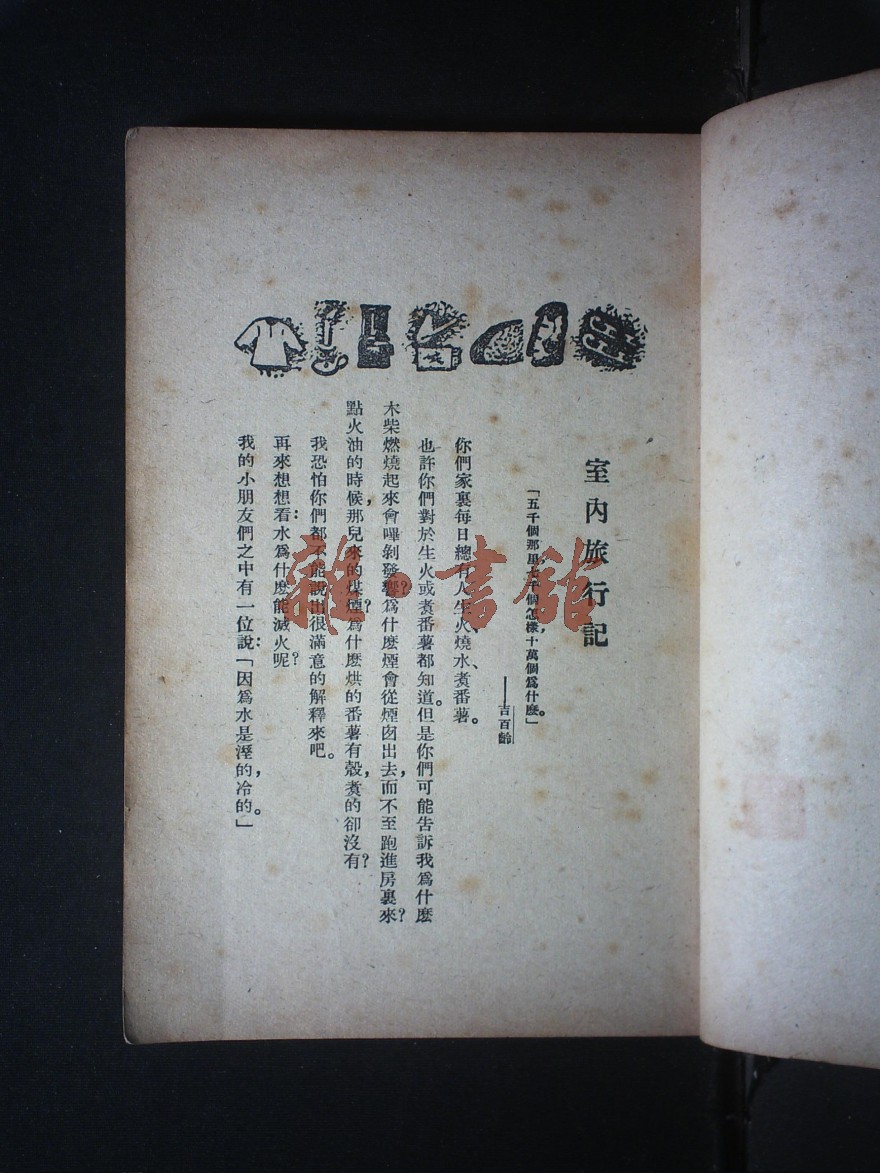 室內旅行記
「五千個那里，七千個怎樣，十萬個爲什麽。」
——吉百齡
你們家裏每日總有人生火、燒水、煮番薯。
也許你們對於生火或煮番薯都知道。但是你們可能告訴我爲什麽
木柴燃燒起來會嗶剝發響？爲什麽煙會從煙囱出去，而不至跑進房裏來？
點火油的時候，那兒來的煤煙？爲什麽烘的番薯有殼，煑的卻沒有？
我恐怕你們都不能說出很滿意的解釋來吧。
再來想想看：水爲什麽能滅火呢？
我的小朋友們之中有一位說：「因爲水是溼的，冷的。」
雜·書館